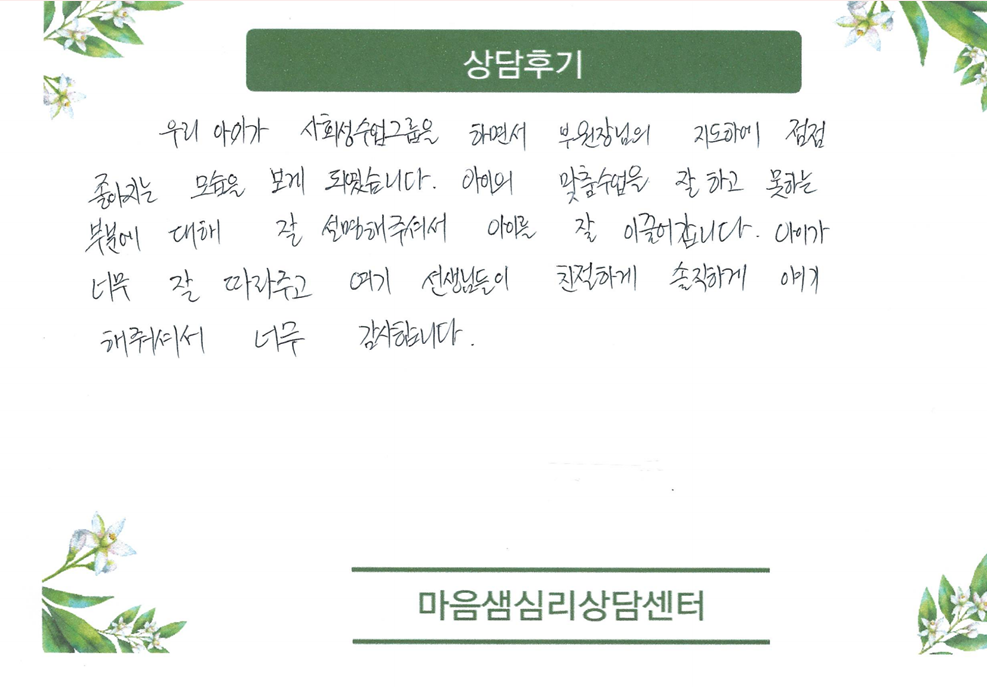 상담후기
우리 아이가 사회성수업그룹을 하면서 부원장님의 지도하에 점점
좋아지는 모습을 보게 되었습니다. 아이의 맞춤수업을 잘 하고 못하는
부분에 대해 잘 설명해주셔서 아이를 잘 이끌어갑니다. 아이가
너무 잘 따라주고 여기 선생님들이 친절하게 솔직하게 얘기
해줘셔서 너무 감사합니다.
마음샘심리상담센터